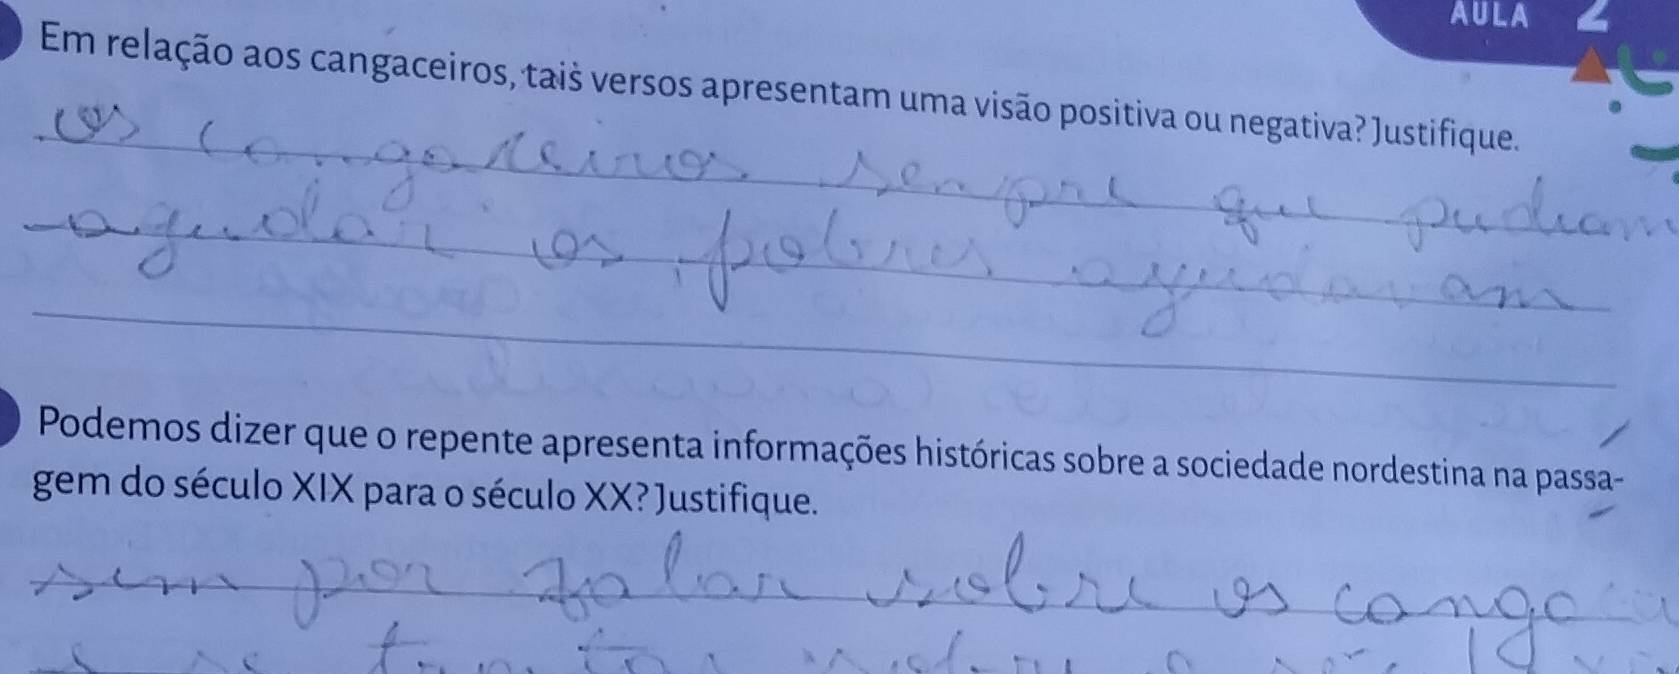 AULA 2
Em relação aos cangaceiros, tais versos apresentam uma visão positiva ou negativa? Justifique.
os cangaceiros sempre que pudiam
agudar os pobres ayudavam
Podemos dizer que o repente apresenta informações históricas sobre a sociedade nordestina na passa-
gem do século XIX para o século XX? Justifique.
sim por falar sobre os